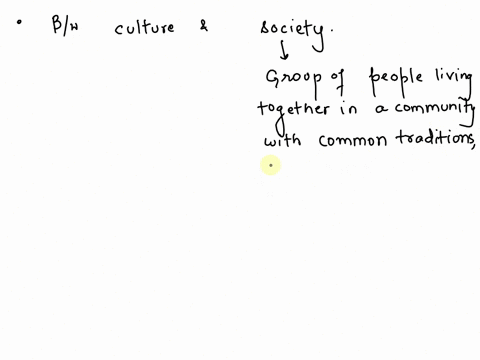 • B/w culture & society.
↓
Group of people living
together in a community
with common traditions,